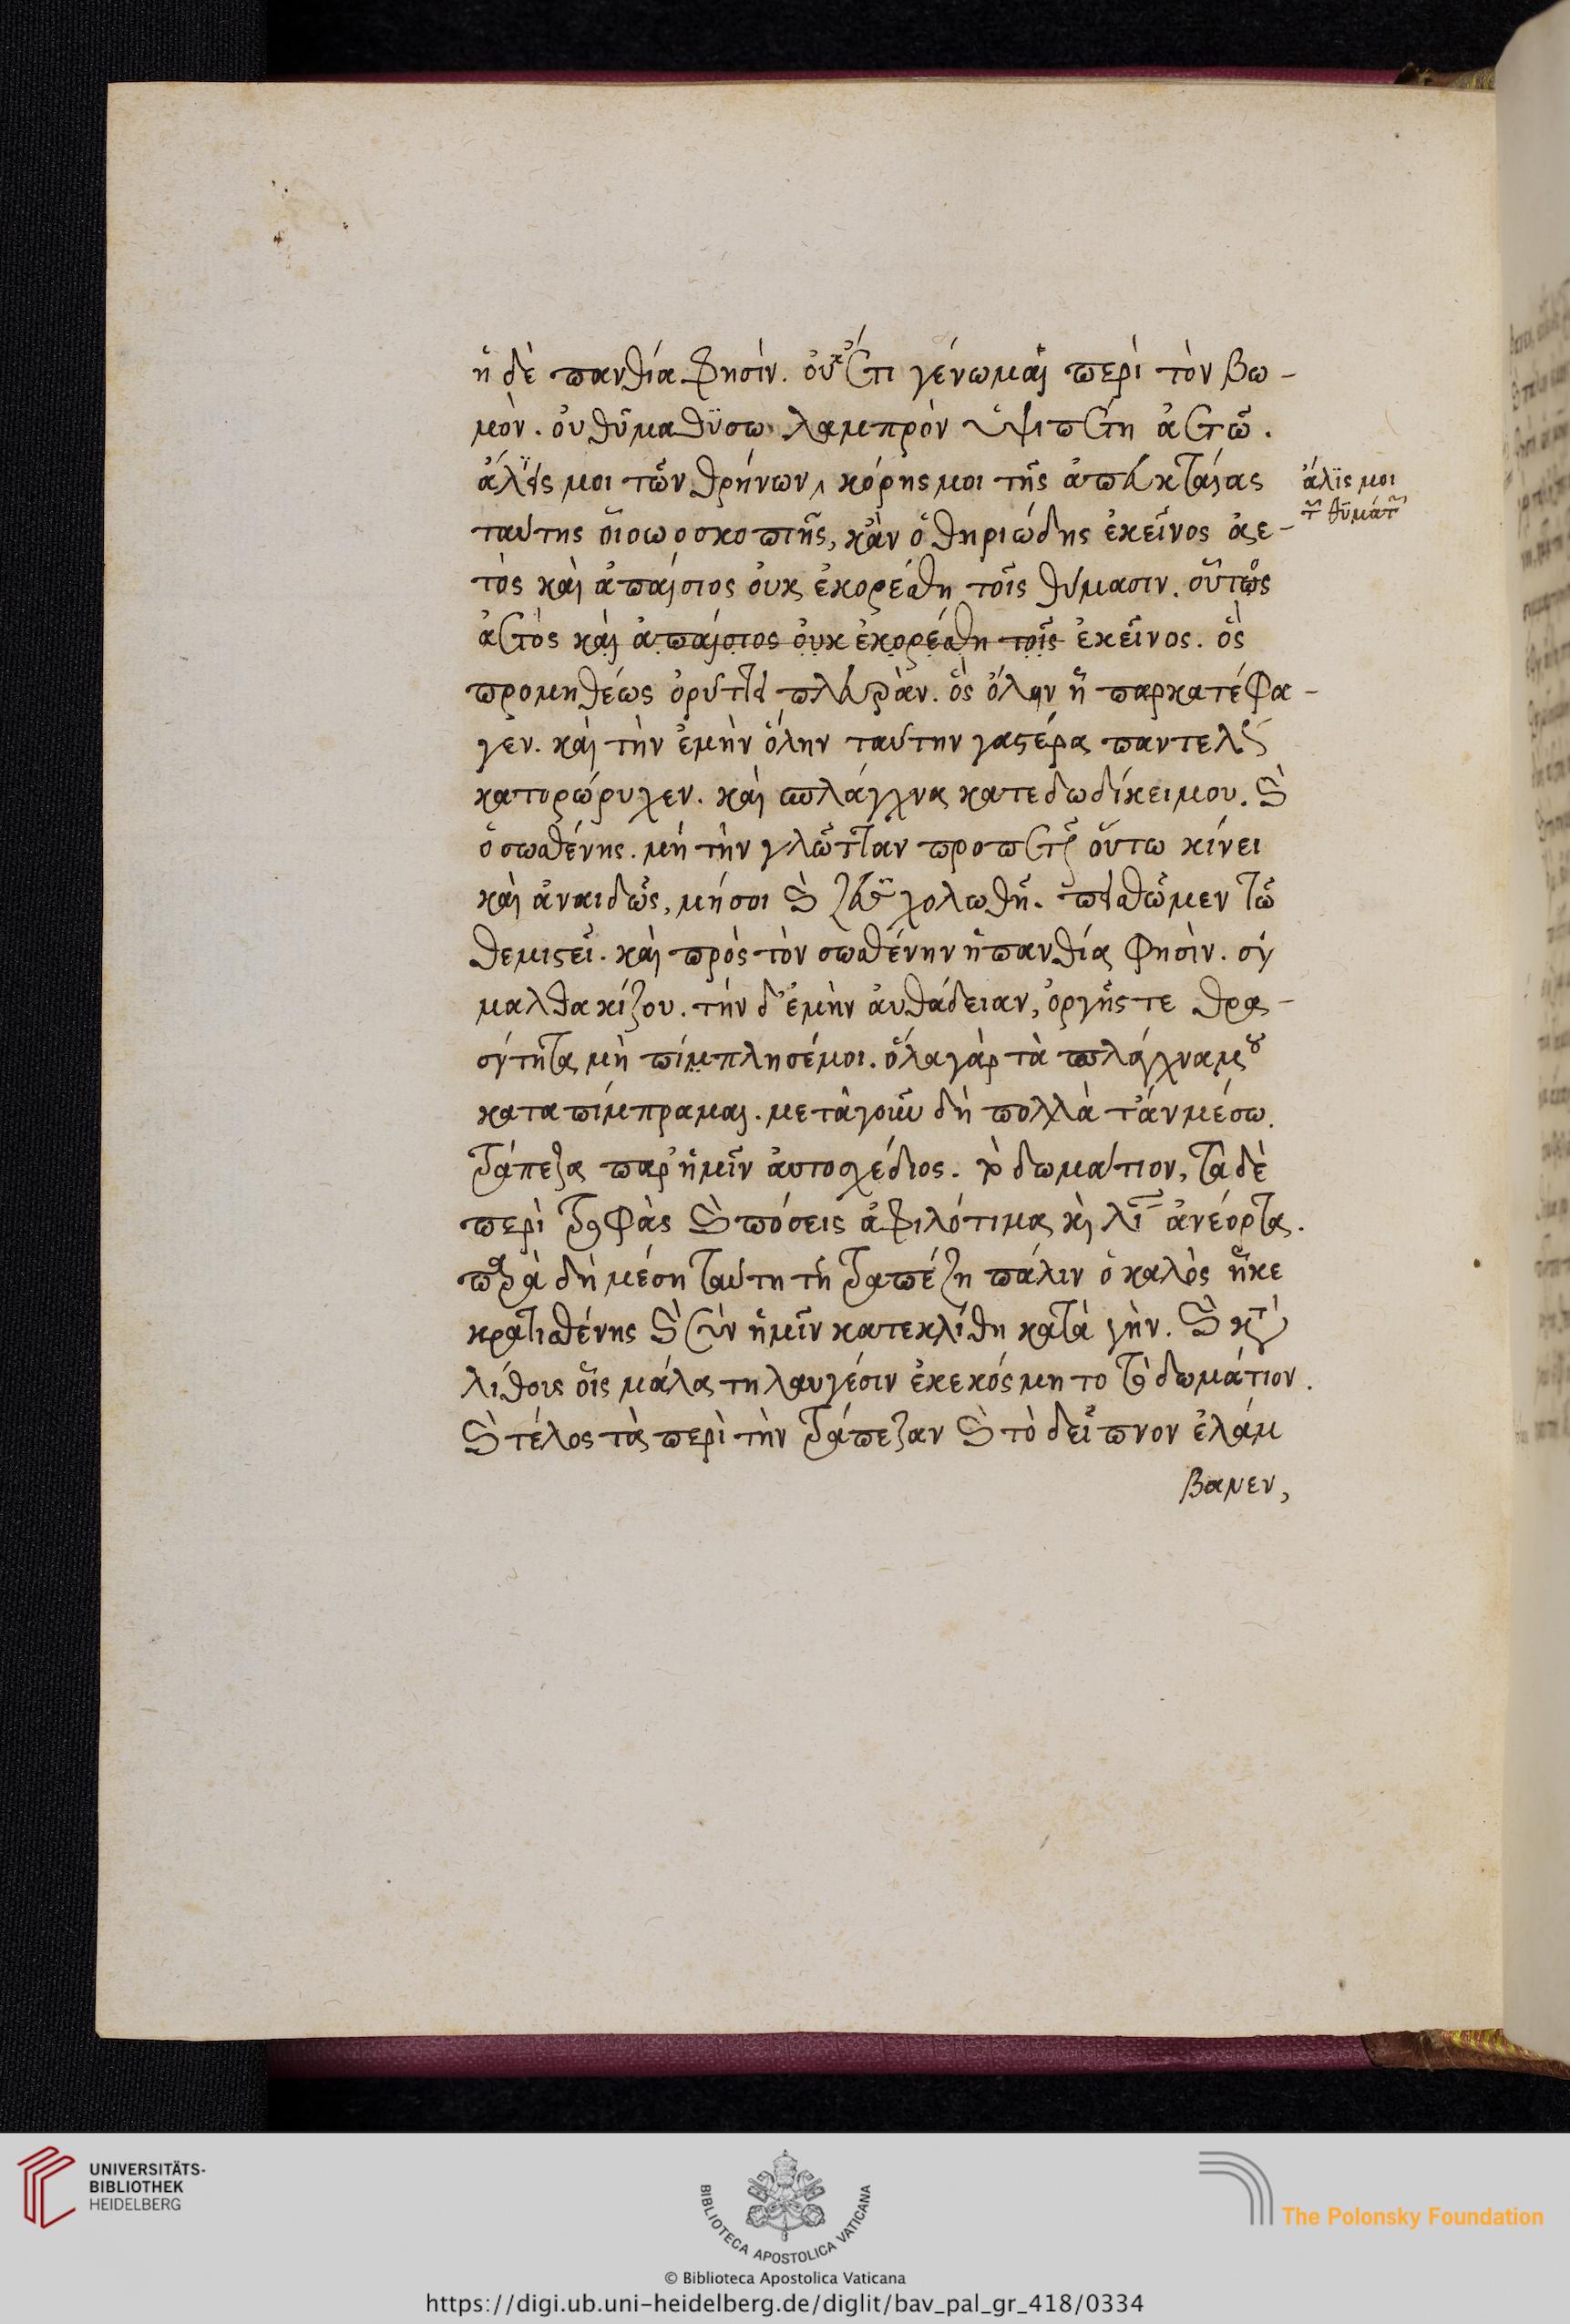 ἡ δὲ πανθία φησὶν. οὐκ ἔτι γένωμαι περὶ τὸν βω-
μὸν. οὐ θῦμα θύσω λαμπρὸν ὑψιπέτη ἀετῶ.
ἅλις μοι τῶν θρήνων, κόρης μοι τῆς ἀπευκταίας
ταύτης οἰωοσκοπιῆς, κἂν ὁ θηριώδης ἐκεῖνος ἀε-
τὸς καὶ ἀπαίσιος οὐκ ἐκορέσθη τοῖς θύμασιν. οὕτως
ἀετὸς καὶ ἀπαίσιος οὐκ ἐκορέσθη τοῖς ἐκεῖνος. ὃς
προμηθέως ὀρύττει πλευρὰν. ὃς ὅλην ἧπαρ κατέφα-
γεν. καὶ τὴν ἐμὴν ὅλην ταύτην γαστέρα παντελῶς
κατορώρυχεν. καὶ σπλάγχνα κατεδωδίκει μου. καὶ
ὁ σωσθένης. μὴ τὴν γλῶτταν προπετῶς οὕτω κίνει
καὶ ἀναιδῶς, μή σοι καὶ ζεὺς χολωθῆ. πεισθῶμεν τῶ
θεμιστεῖ. καὶ πρὸς τὸν σωσθένην ἡ πανθία φησὶν. σὺ
μαλθακίζου. τὴν δ' ἐμὴν αὐθάδειαν, ὀργῆς τε θρα-
σύτητα μὴ πίμπλησέ μοι. ὅλα γὰρ τὰ σπλάγχνα μου
καταπίμπραμαι. μετὰ γοῦν δὴ πολλὰ τἂν μέσω.
τράπεζα παρ' ἡμῖν αὐτοσχέδιος. τὸ δωμάτιον, τὰ δὲ
περὶ τροφὰς καὶ πόσεις ἀφιλότιμα καὶ λίαν ἀνέορτα.
παρὰ δὴ μέση ταύτη τῆ τραπέζη πάλιν ὁ καλὸς ἧκε
κρατισθένης καὶ σὺν ἡμῖν κατεκλίθη κατὰ γῆν. καὶ κατὰ
λίθοις οἷς μάλα τηλαυγέσιν ἐκεκόσμητο τὸ δωμάτιον.
καὶ τέλος τὰ περὶ τὴν τράπεζαν καὶ τὸ δεῖπνον ἐλάμ
βανεν,
ἅλις μοι
τῶν θυμάτων
UNIVERSITÄTS-
BIBLIOTHEK
HEIDELBERG
BIBLIOTECA APOSTOLICA VATICANA
© Biblioteca Apostolica Vaticana
The Polonsky Foundation
https://digi.ub.uni-heidelberg.de/diglit/bav_pal_gr_418/0334